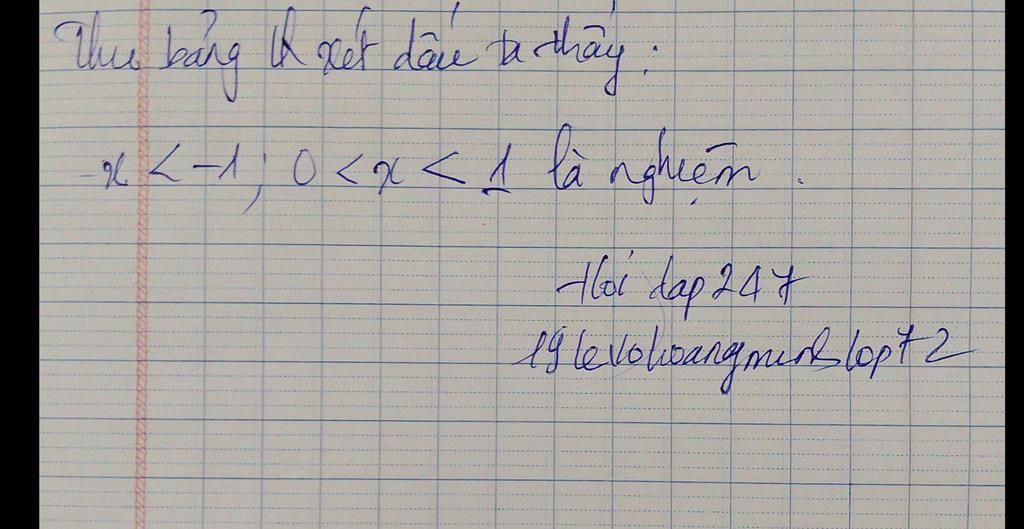 Thu bảng xét dấu ta thấy:
x < -1; 0 < x < 1 là nghiệm.
Hoi dap 247
19levohoangminhlop72